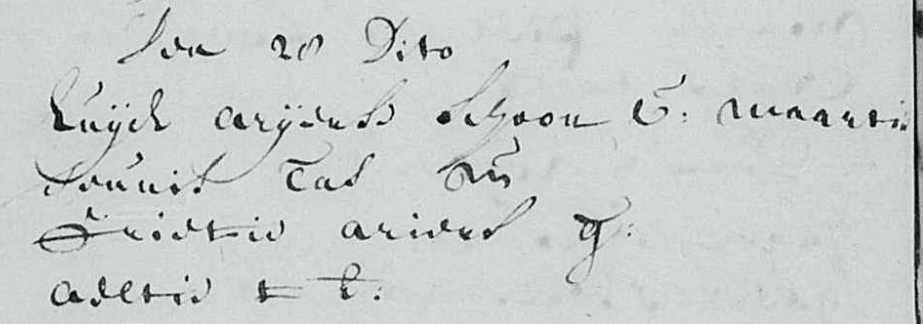 den 28 Dito
Luijck arijense Schoon V: maarti
Teunis Tas en
Grietie ariens g:
aeltie t k: